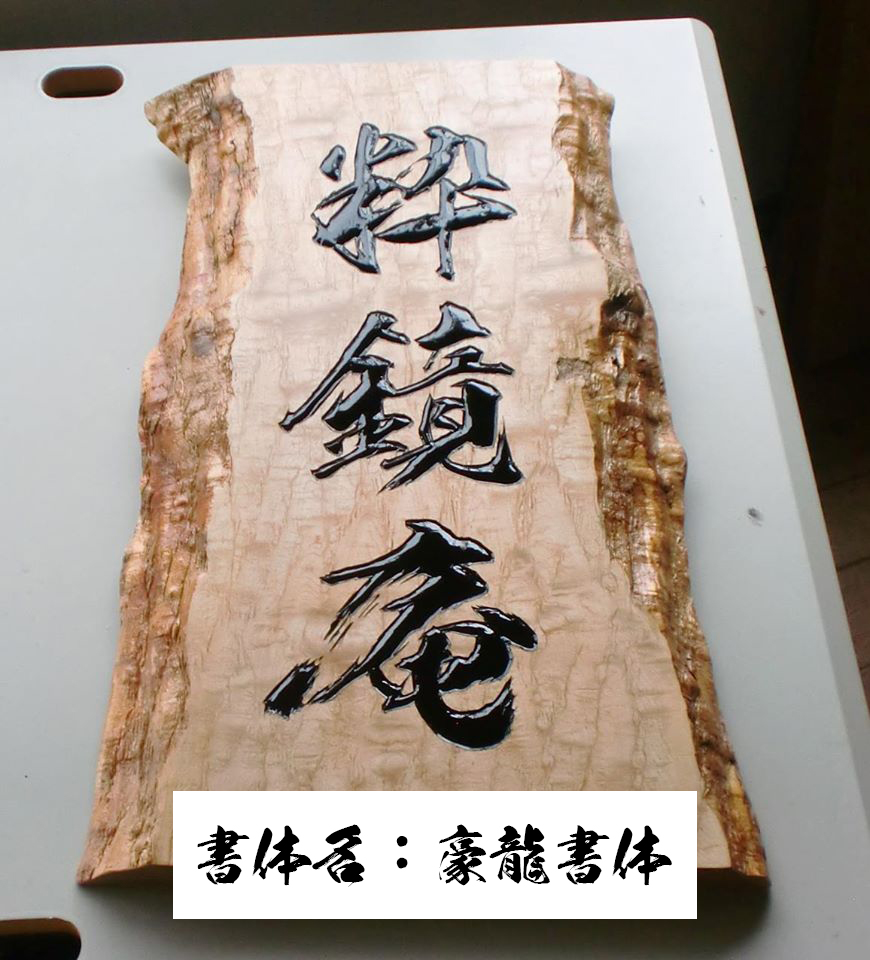 粋鏡庵
書体名：豪龍書体